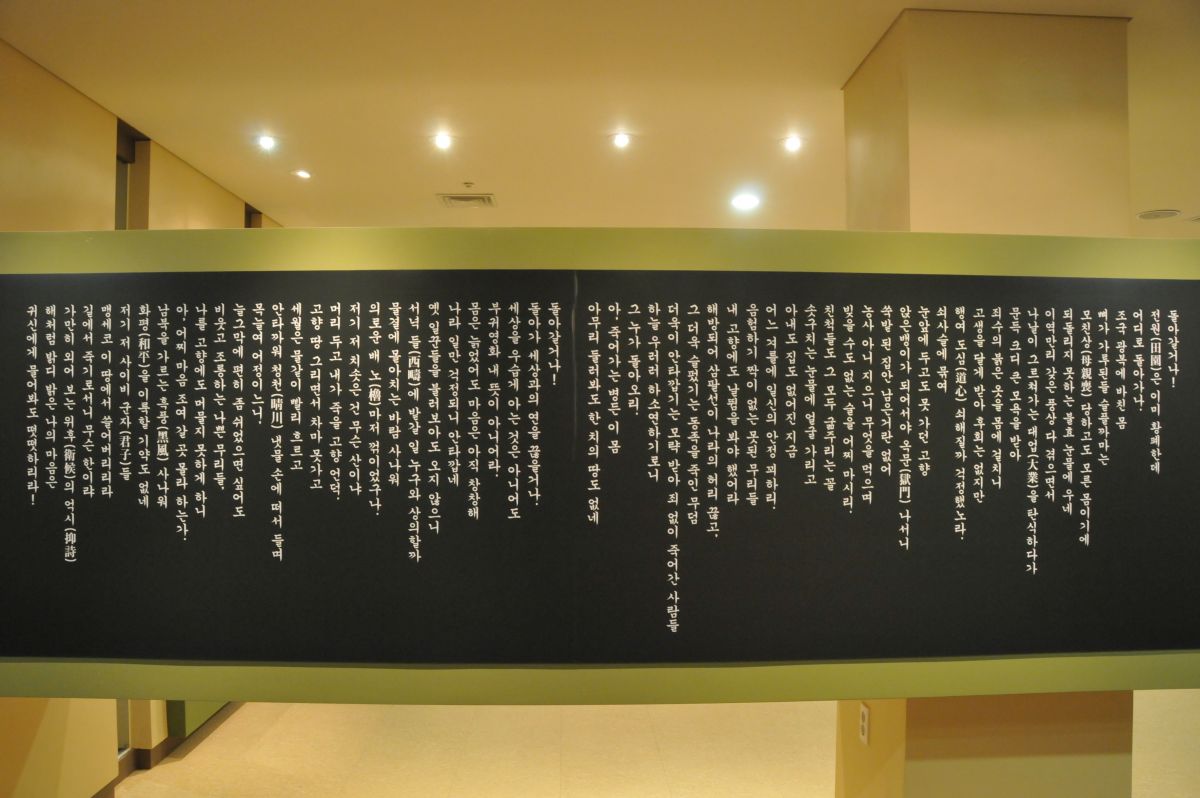 돌아갈거나!
전원(田園)은 이미 황폐한데
어디로 돌아가나.
조국 광복에 바친 몸
뼈가 가루된들 슬플까마는
모친상(母親喪) 당하고도 모른 몸이기에
되돌리지 못하는 불효 눈물에 우네
이역만리 갖은 풍상 다 겪으면서
나날이 그르쳐가는 대업(大業)을 탄식하다가
문득 크디 큰 모욕을 받아
죄수의 붉은 옷을 몸에 걸치니
고생을 달게 받아 후회는 없지만
행여 도심(道心) 쇠해질까 걱정했노라.
쇠사슬에 묶여
눈앞에 두고도 못 가던 고향
앉은뱅이가 되어서야 옥문(獄門) 나서니
쑥밭된 집안 남은거란 없어
농사 아니 지으니 무엇을 먹으며
빚을 수도 없는 술을 어찌 마시리.
친척들도 그 모두 굶주리는 꼴
솟구치는 눈물에 얼굴 가리고
아내도 집도 없어진 지금
어느 겨를에 일신의 안정 꾀하리.
음험하기 짝이 없는 못된 무리들
내 고향에도 날뜀을 봐야 했어라
해방되어 삼팔선이 나라의 허리 끊고,
그 더욱 슬펐기는 동족을 죽인 무덤
더욱이 안타깝기는 모략 받아 죄 없이 죽어간 사람들
하늘 우러러 하소연하기로니
그 누가 돌아오리.
아, 죽어가는 병든 이 몸
아무리 둘러봐도 한 치의 땅도 없네
돌아갈거나!
돌아가 세상과의 연을 끊을거나.
세상을 우습게 아는 것은 아니어도
부귀영화 내 뜻이 아니어라.
몸은 늙었어도 마음은 아직 창창해
나라 일만 걱정되니 안타깝네
옛 일꾼들을 불러보아도 오지 않으니
서녘 들(西疇)에 밭갈 일 누구와 상의할까
물결에 몰아치는 바람 사나워
의로운 배 노(櫓)마저 꺾이었구나.
저기 저 치솟은 건 무슨 산이냐
머리 두고 내가 죽을 고향 언덕.
고향 땅 그리면서 차마 못가고
세월은 물같이 빨리 흐르고
안타까워 청천(晴川) 냇물 손에 떠서 들며
목늘여 어정이느니.
늘그막에 편히 좀 쉬었으면 싶어도
비웃고 조롱하는 나쁜 무리들.
나를 고향에도 머물지 못하게 하니
아, 어찌 마음 조여 갈 곳 몰라 하는가.
남북을 가르는 흑풍(黑風) 사나워
화평(和平)을 이룩할 기약도 없네
저기 저 사이비 군자(君子)들
맹세코 이 땅에서 쓸어버리리라
길에서 죽기로서니 무슨 한이랴
가만히 외어 보는 위후(衛候)의 억시(抑詩)
해처럼 밝디 밝은 나의 마음은
귀신에게 물어봐도 떳떳하리라!